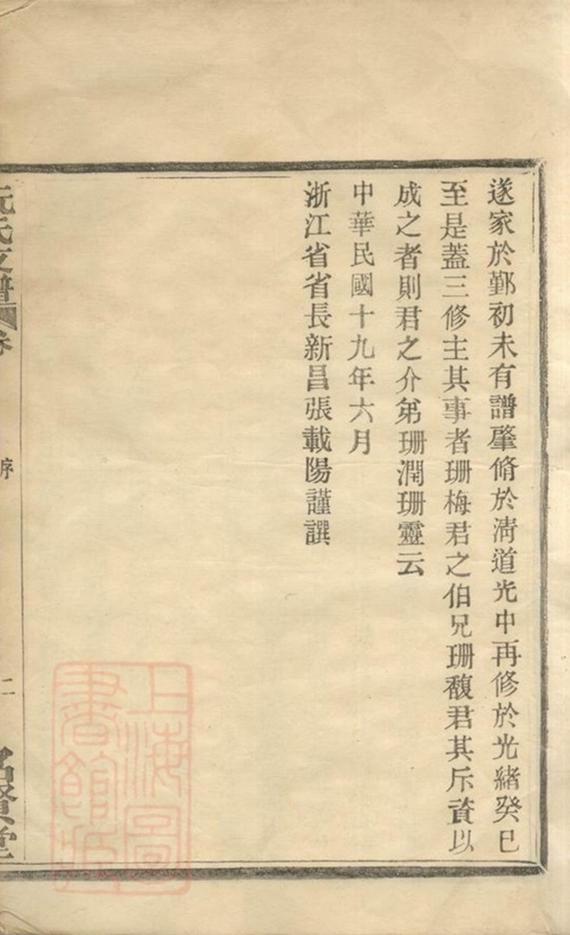 遂家於鄞初未有譜肇脩於清道光中再修於光緒癸巳
至是蓋三修主其事者珊梅君之伯兄珊馥君其斥資以
成之者則君之介弟珊潤珊靈云
中華民國十九年六月
浙江省省長新昌張載陽謹譔
阮氏支譜
卷
序
二
名賢堂
上海圖
書館藏